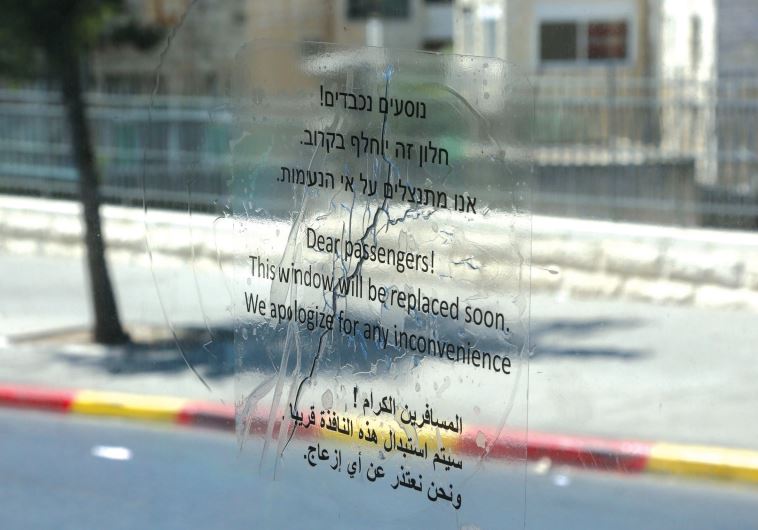 נוסעים נכבדים!
חלון זה יוחלף בקרוב.
אנו מתנצלים על אי הנעימות.
Dear passengers!
This window will be replaced soon.
We apologize for any inconvenience
المسافرين الكرام !
سيتم استبدال هذه النافذة قريبا .
ونحن نعتذر عن أي إزعاج.